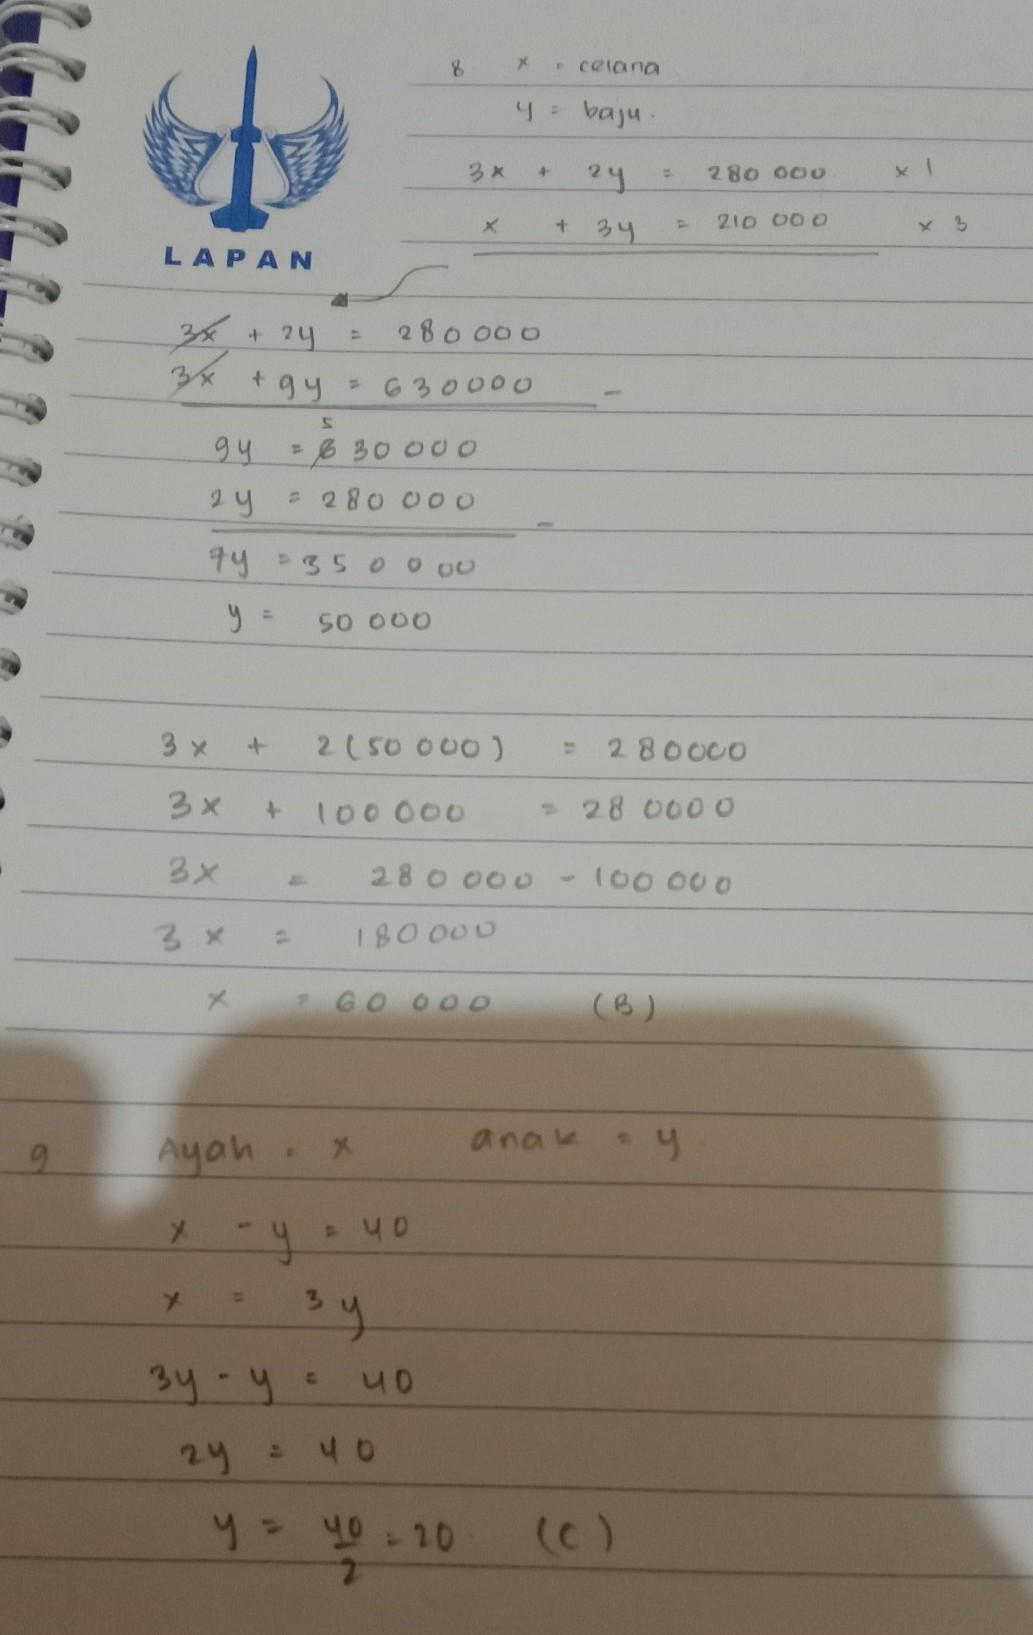 LAPAN
8 x = celana
y = baju.
3x + 2y = 280 000 x 1
x + 3y = 210 000 x 3
3x + 2y = 280000
3x + 9y = 630000 -
5
9y = 630000
2y = 280 000 -
7y = 350000
y = 50 000
3x + 2(50 000) = 280000
3x + 100 000 = 280000
3x = 280 000 - 100 000
3x = 180000
x = 60 000 (B)
9 Ayah = x anak = y
x - y = 40
x = 3y
3y - y = 40
2y = 40
y = 40/2 = 20. (C)